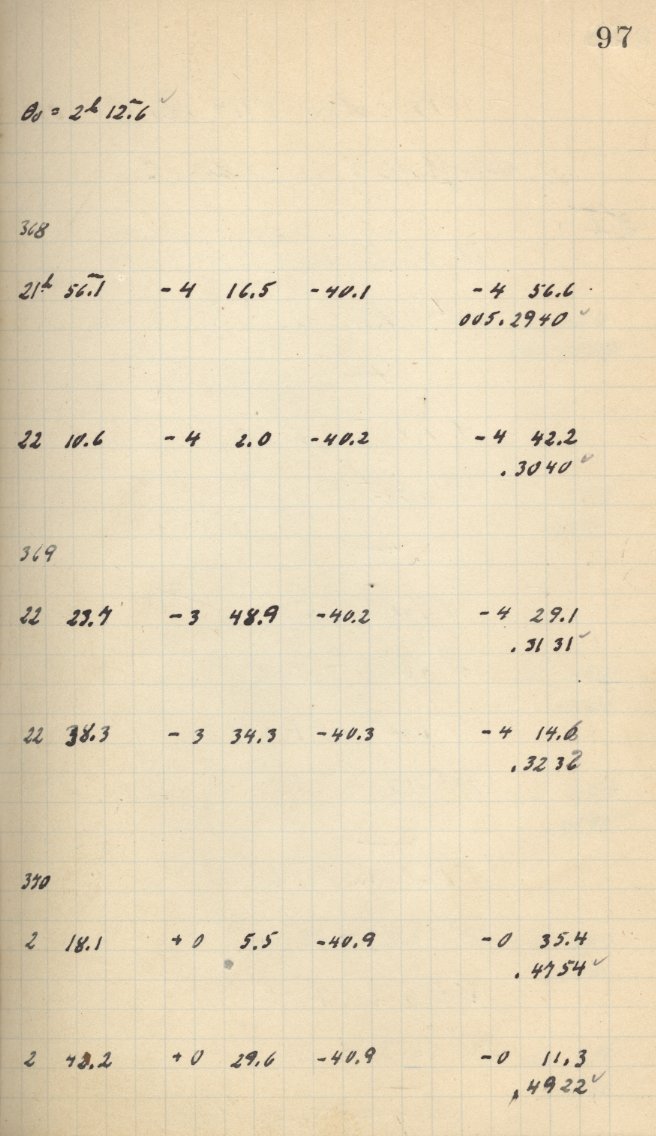 97
θ₀ = 2ʰ 12ᵐ.6 ✓
368
21ʰ 56ᵐ.1 -4 16.5 -40.1 -4 56.6
005.2940 ✓
22 10.6 -4 2.0 -40.2 -4 42.2
.3040 ✓
369
22 23.7 -3 48.9 -40.2 -4 29.1
.3131 ✓
22 38.3 -3 34.3 -40.3 -4 14.6
.3236
370
2 18.1 +0 5.5 -40.9 -0 35.4
.4754 ✓
2 42.2 +0 29.6 -40.9 -0 11.3
.4922 ✓